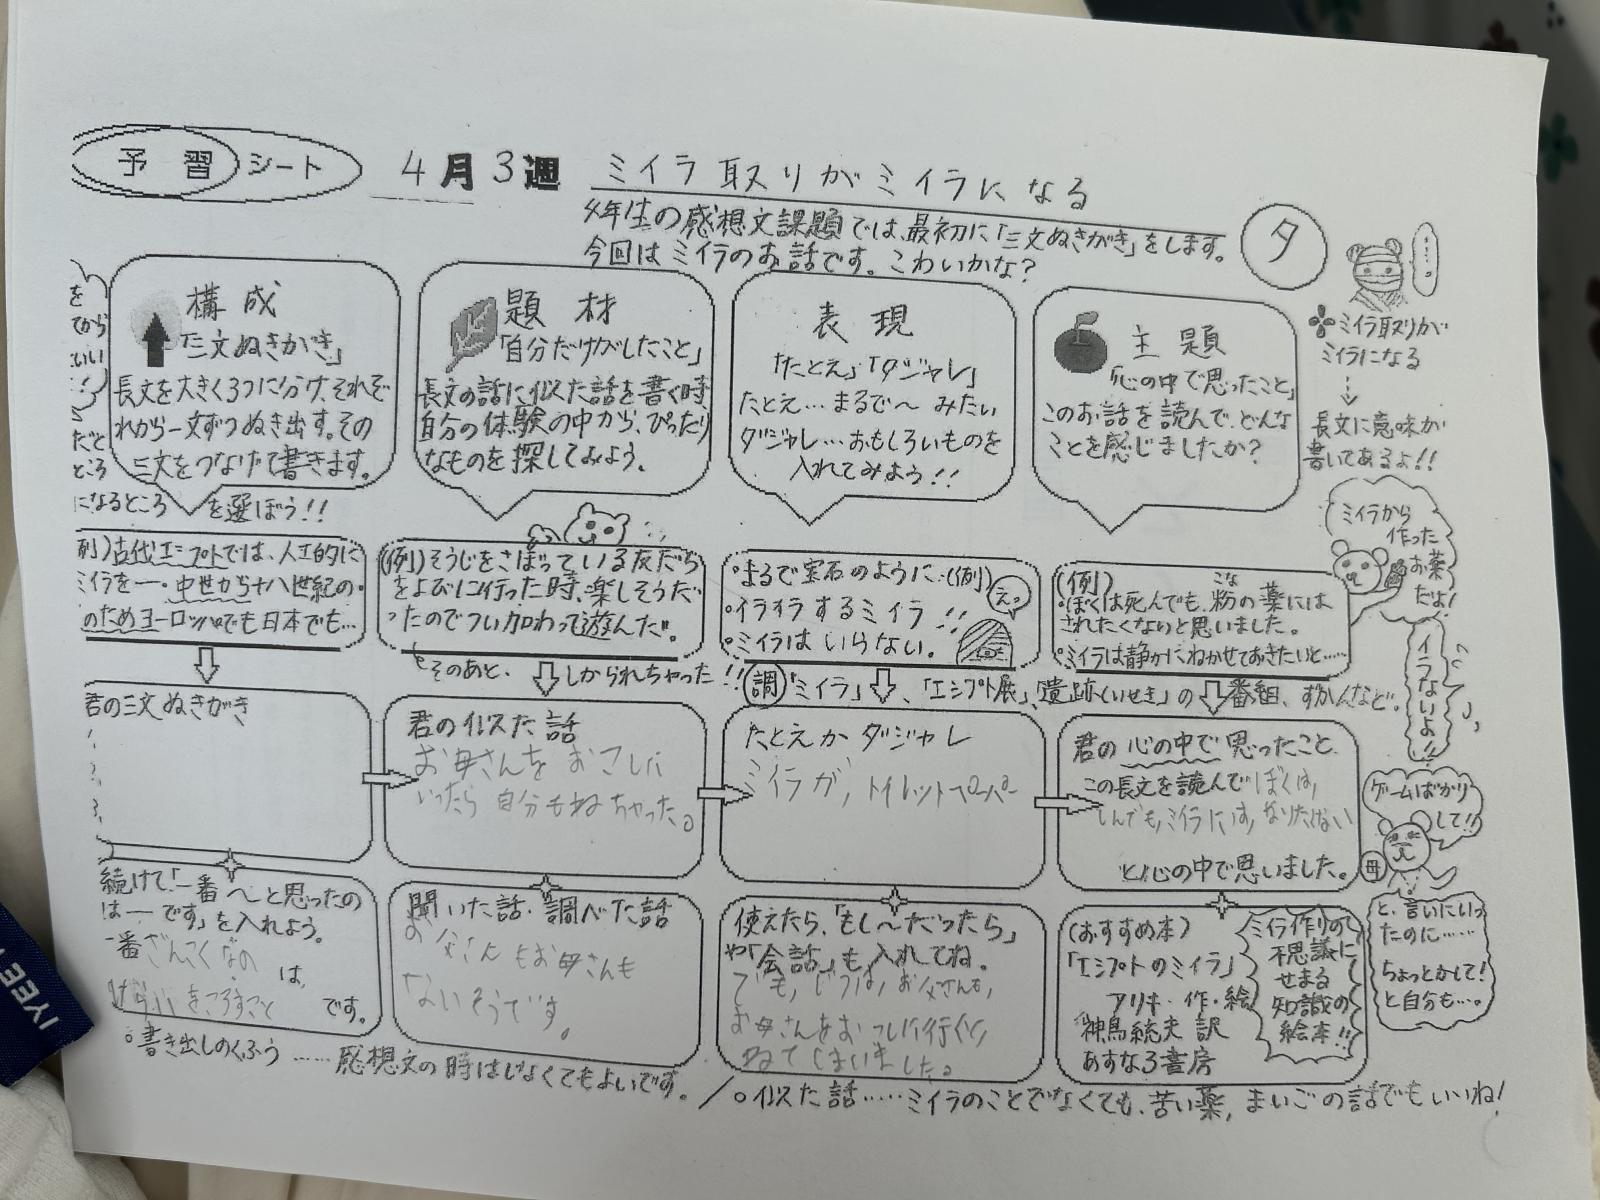 予習シート 4月3週 ミイラ取りがミイラになる
4年生の感想文課題では、最初に「三文ぬきがき」をします。
今回はミイラのお話です。こわいかな?
タ
構成
「三文ぬきがき」
長文を大きく3つに分け、それぞ
れから一文ずつぬき出す。その
三文をつなげて書きます。
になるところ を選ぼう!!
題材
「自分だけがしたこと」
長文の話に似た話を書く時
自分の体験の中から、ぴったり
なものを探してみよう。
表現
「たとえ」「ダジャレ」
たとえ…まるで〜みたい
ダジャレ…おもしろいものを
入れてみよう!!
主題
「心の中で思ったこと」
このお話を読んで、どんな
ことを感じましたか?
ミイラ取りが
ミイラになる
長文に意味が
書いてあるよ!!
ミイラから
作った
お薬
だよ!
例)古代エジプトでは、人工的に
ミイラを一・中世から十八世紀の・
のためヨーロッパでも日本でも…
(例)そうじをさぼっている友だち
をよびに行った時、楽しそうだ
ったのでつい加わって遊んだ。
そのあと、しかられちゃった!!
・まるで宝石のように…(例)
・イライラするミイラ!!
・ミイラはいらない。
えっ
(例)
・ぼくは死んでも、粉の薬には
こな
されたくないと思いました。
・ミイラは静かにねかせておきたいと……
イラないよ!!
調「ミイラ」、「エジプト展」、「遺跡(いせき)」の番組、ずかんなど。
君の三文ぬきがき
君の似た話
お母さんをおこしに
いったら自分もねちゃった。
たとえかダジャレ
ミイラが、トイレットペーパー
君の心の中で思ったこと
この長文を読んでぼくは、
しんでもミイラには、なりたくない
と心の中で思いました。
ゲームばかり
して!!
母
と、言いにいっ
たのに……
ちょっとかして!
と自分も…。
続けて「一番〜と思ったの
は一です」を入れよう。
一番ざんこくなの
は、
をころすこと
です。
聞いた話・調べた話
の父さんもお母さんも
ないそうです。
使えたら、「もし〜だったら」
や「会話」も入れてね。
でも、じつは、お父さんも、
お母さんをおこしに行くと、
ねてしまいました。
(おすすめ本)
「エジプトのミイラ」
アリキ・作・絵
神鳥統夫 訳
あすなろ書房
ミイラ作りの
不思議に
せまる
知識の
絵本!!
○書き出しのくふう……感想文の時はじなくてもよいです。/○似た話……ミイラのことでなくても、苦い薬、まいごの話でもいいね!